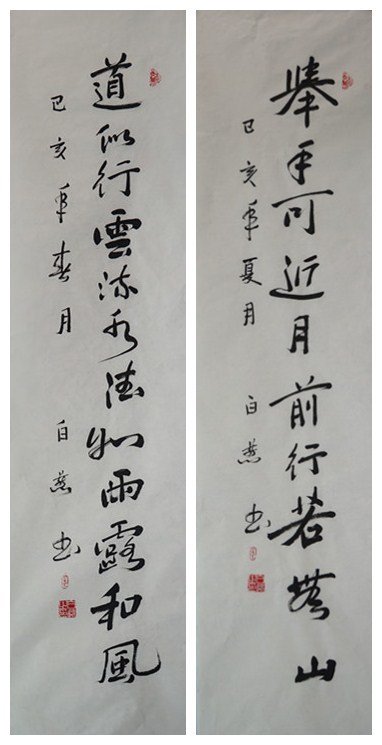 舉手可近月前行若無山
己亥年夏月 白燕书
道似行雲流水德如雨露和風
己亥年春月 白燕书